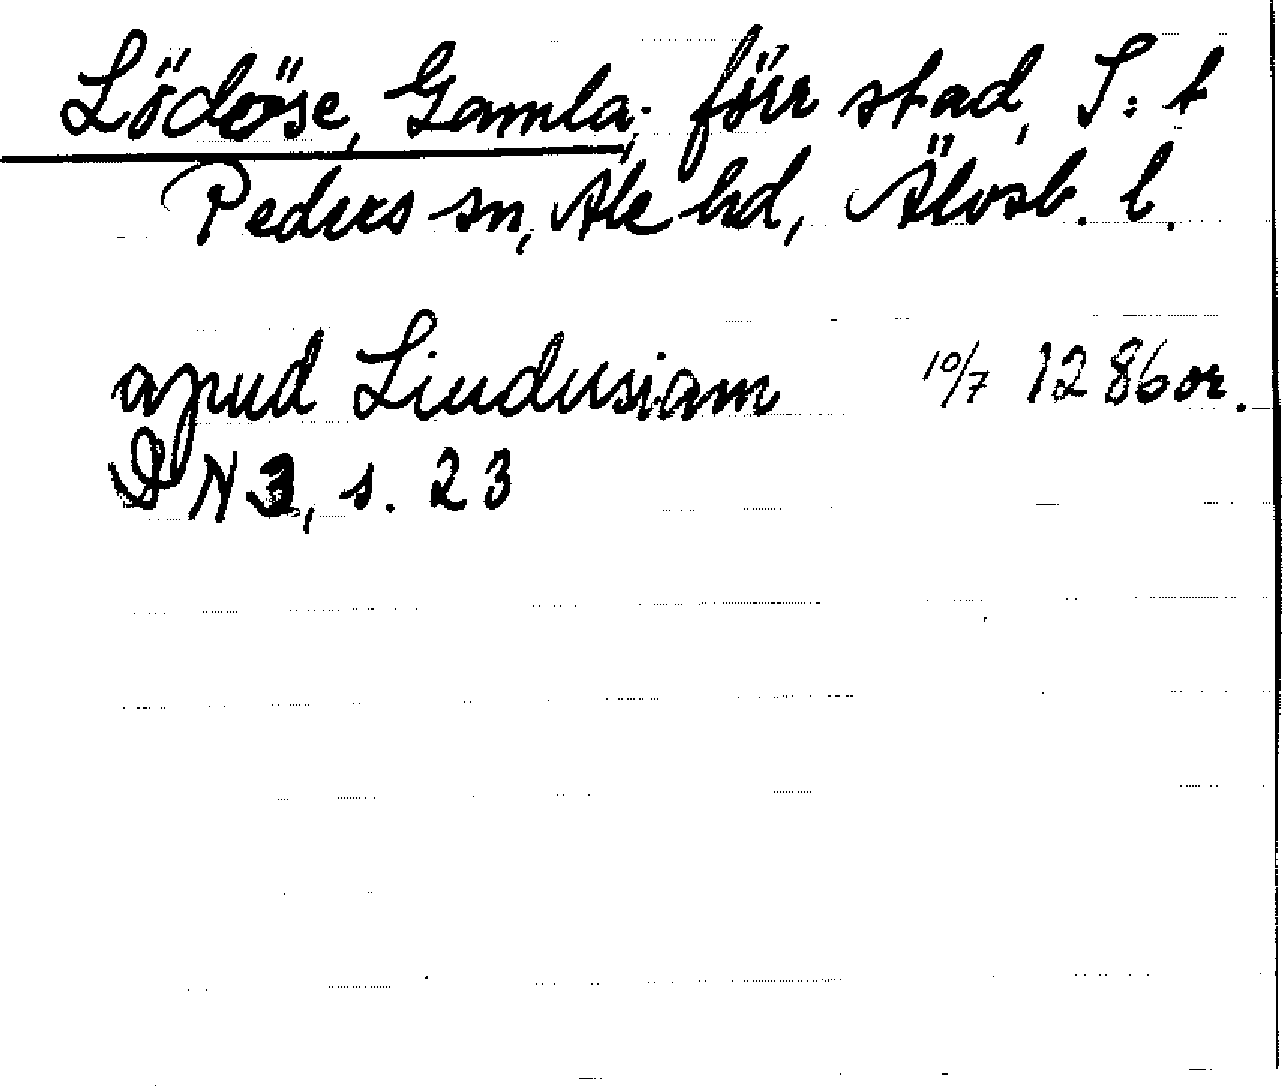 Lödöse, Gamla, förr stad, S:t
Peders sn, Ale hd, Älvsb. l.
apud Liudusiam 10/7 1286 or.
DN 3, s. 23